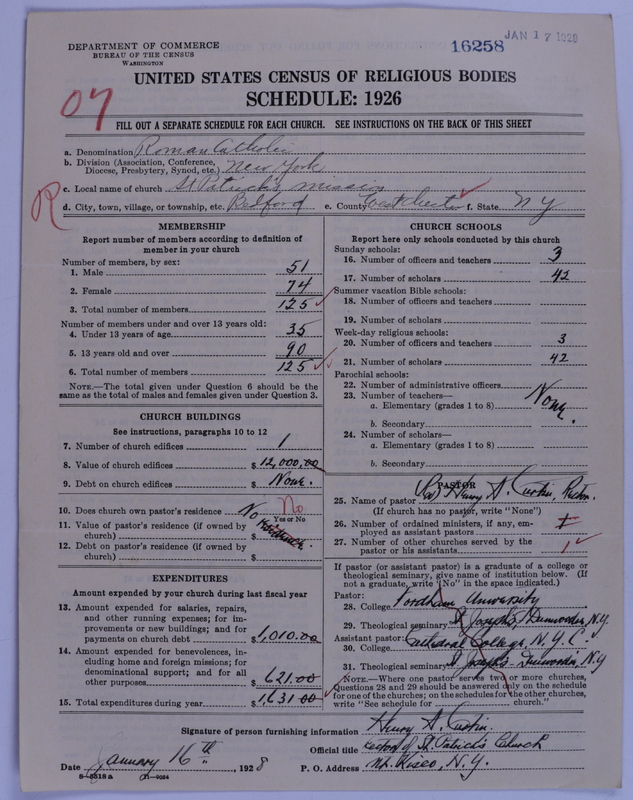 DEPARTMENT OF COMMERCE
BUREAU OF THE CENSUS
WASHINGTON
16258
JAN 17 1928
UNITED STATES CENSUS OF RELIGIOUS BODIES
SCHEDULE: 1926
07
FILL OUT A SEPARATE SCHEDULE FOR EACH CHURCH. SEE INSTRUCTIONS ON THE BACK OF THIS SHEET
a. Denomination Roman Catholic
b. Division (Association, Conference, Diocese, Presbytery, Synod, etc.) New York
c. Local name of church St Patrick's mission
R
d. City, town, village, or township, etc. Bedford e. County Westchester f. State N Y
MEMBERSHIP
Report number of members according to definition of member in your church
Number of members, by sex:
1. Male 51
2. Female 74
3. Total number of members 125
Number of members under and over 13 years old:
4. Under 13 years of age 35
5. 13 years old and over 90
6. Total number of members 125
NOTE.—The total given under Question 6 should be the same as the total of males and females given under Question 3.
CHURCH BUILDINGS
See instructions, paragraphs 10 to 12
7. Number of church edifices 1
8. Value of church edifices $ 12,000.00
9. Debt on church edifices $ None.
10. Does church own pastor's residence? No No
Yes or No
11. Value of pastor's residence (if owned by church) $
12. Debt on pastor's residence (if owned by church) $
EXPENDITURES
Amount expended by your church during last fiscal year
13. Amount expended for salaries, repairs, and other running expenses; for improvements or new buildings; and for payments on church debt $ 1,010.00
14. Amount expended for benevolences, including home and foreign missions; for denominational support; and for all other purposes $ 621.00
15. Total expenditures during year $ 1,631.00
CHURCH SCHOOLS
Report here only schools conducted by this church
Sunday schools:
16. Number of officers and teachers 3
17. Number of scholars 42
Summer vacation Bible schools:
18. Number of officers and teachers
19. Number of scholars
Week-day religious schools:
20. Number of officers and teachers 3
21. Number of scholars 42
Parochial schools:
22. Number of administrative officers
23. Number of teachers—
a. Elementary (grades 1 to 8) None.
b. Secondary
24. Number of scholars—
a. Elementary (grades 1 to 8)
b. Secondary
PASTOR
25. Name of pastor Rev Henry A. Curtin, Rector.
(If church has no pastor, write "None")
26. Number of ordained ministers, if any, employed as assistant pastors 1
27. Number of other churches served by the pastor or his assistants 1
If pastor (or assistant pastor) is a graduate of a college or theological seminary, give name of institution below. (If not a graduate, write "No" in the space indicated.)
Pastor:
28. College Fordham University
29. Theological seminary St Joseph's Dunwoodie, N.Y.
Assistant pastor:
30. College Cathedral College, N.Y.C.
31. Theological seminary St Joseph's Dunwoodie, N.Y
NOTE.—Where one pastor serves two or more churches, Questions 28 and 29 should be answered only on the schedule for one of the churches; on the schedules for the other churches, write "See schedule for church."
Signature of person furnishing information Henry A. Curtin.
Official title rector of St. Patrick's Church
Date January 16th, 1928 P. O. Address Mt. Kisco, N.Y.
8—5518a 11—9054